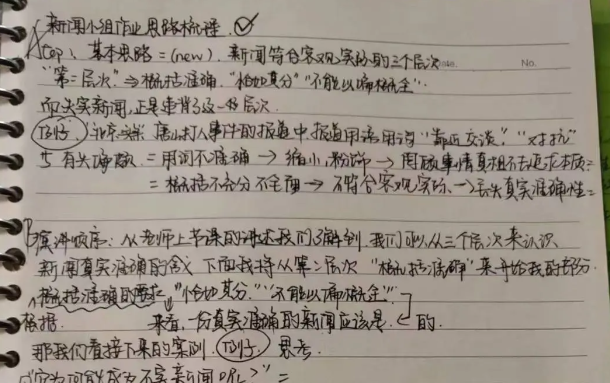 新闻小组作业思路梳理.
Step 1、基本思路=(new) 新闻符合客观实际的三个层次
No.
"第二层次"⇒概括准确."恰如其分""不能以偏概全".
而失实新闻,正是违背了这一层次.
例子. 唐山打人事件的报道中,报道用语用词"靠近交谈"."对抗"
=用词不准确→缩小,粉饰→罔顾事情真相不去追求本质=
=概括不充分不全面→不符合客观实际→丢失真实准确性=
演讲顺序:从老师上节课的讲述我们了解到,我们可以从三个层次来认识
新闻真实准确的含义 下面我将从第二层次"概括准确"来开始我的部分.
概括准确的要求"恰如其分""不能以偏概全"
根据. 来看,一份真实准确的新闻应该是 的.
那我们看接下来的案例. 例子. 思考.